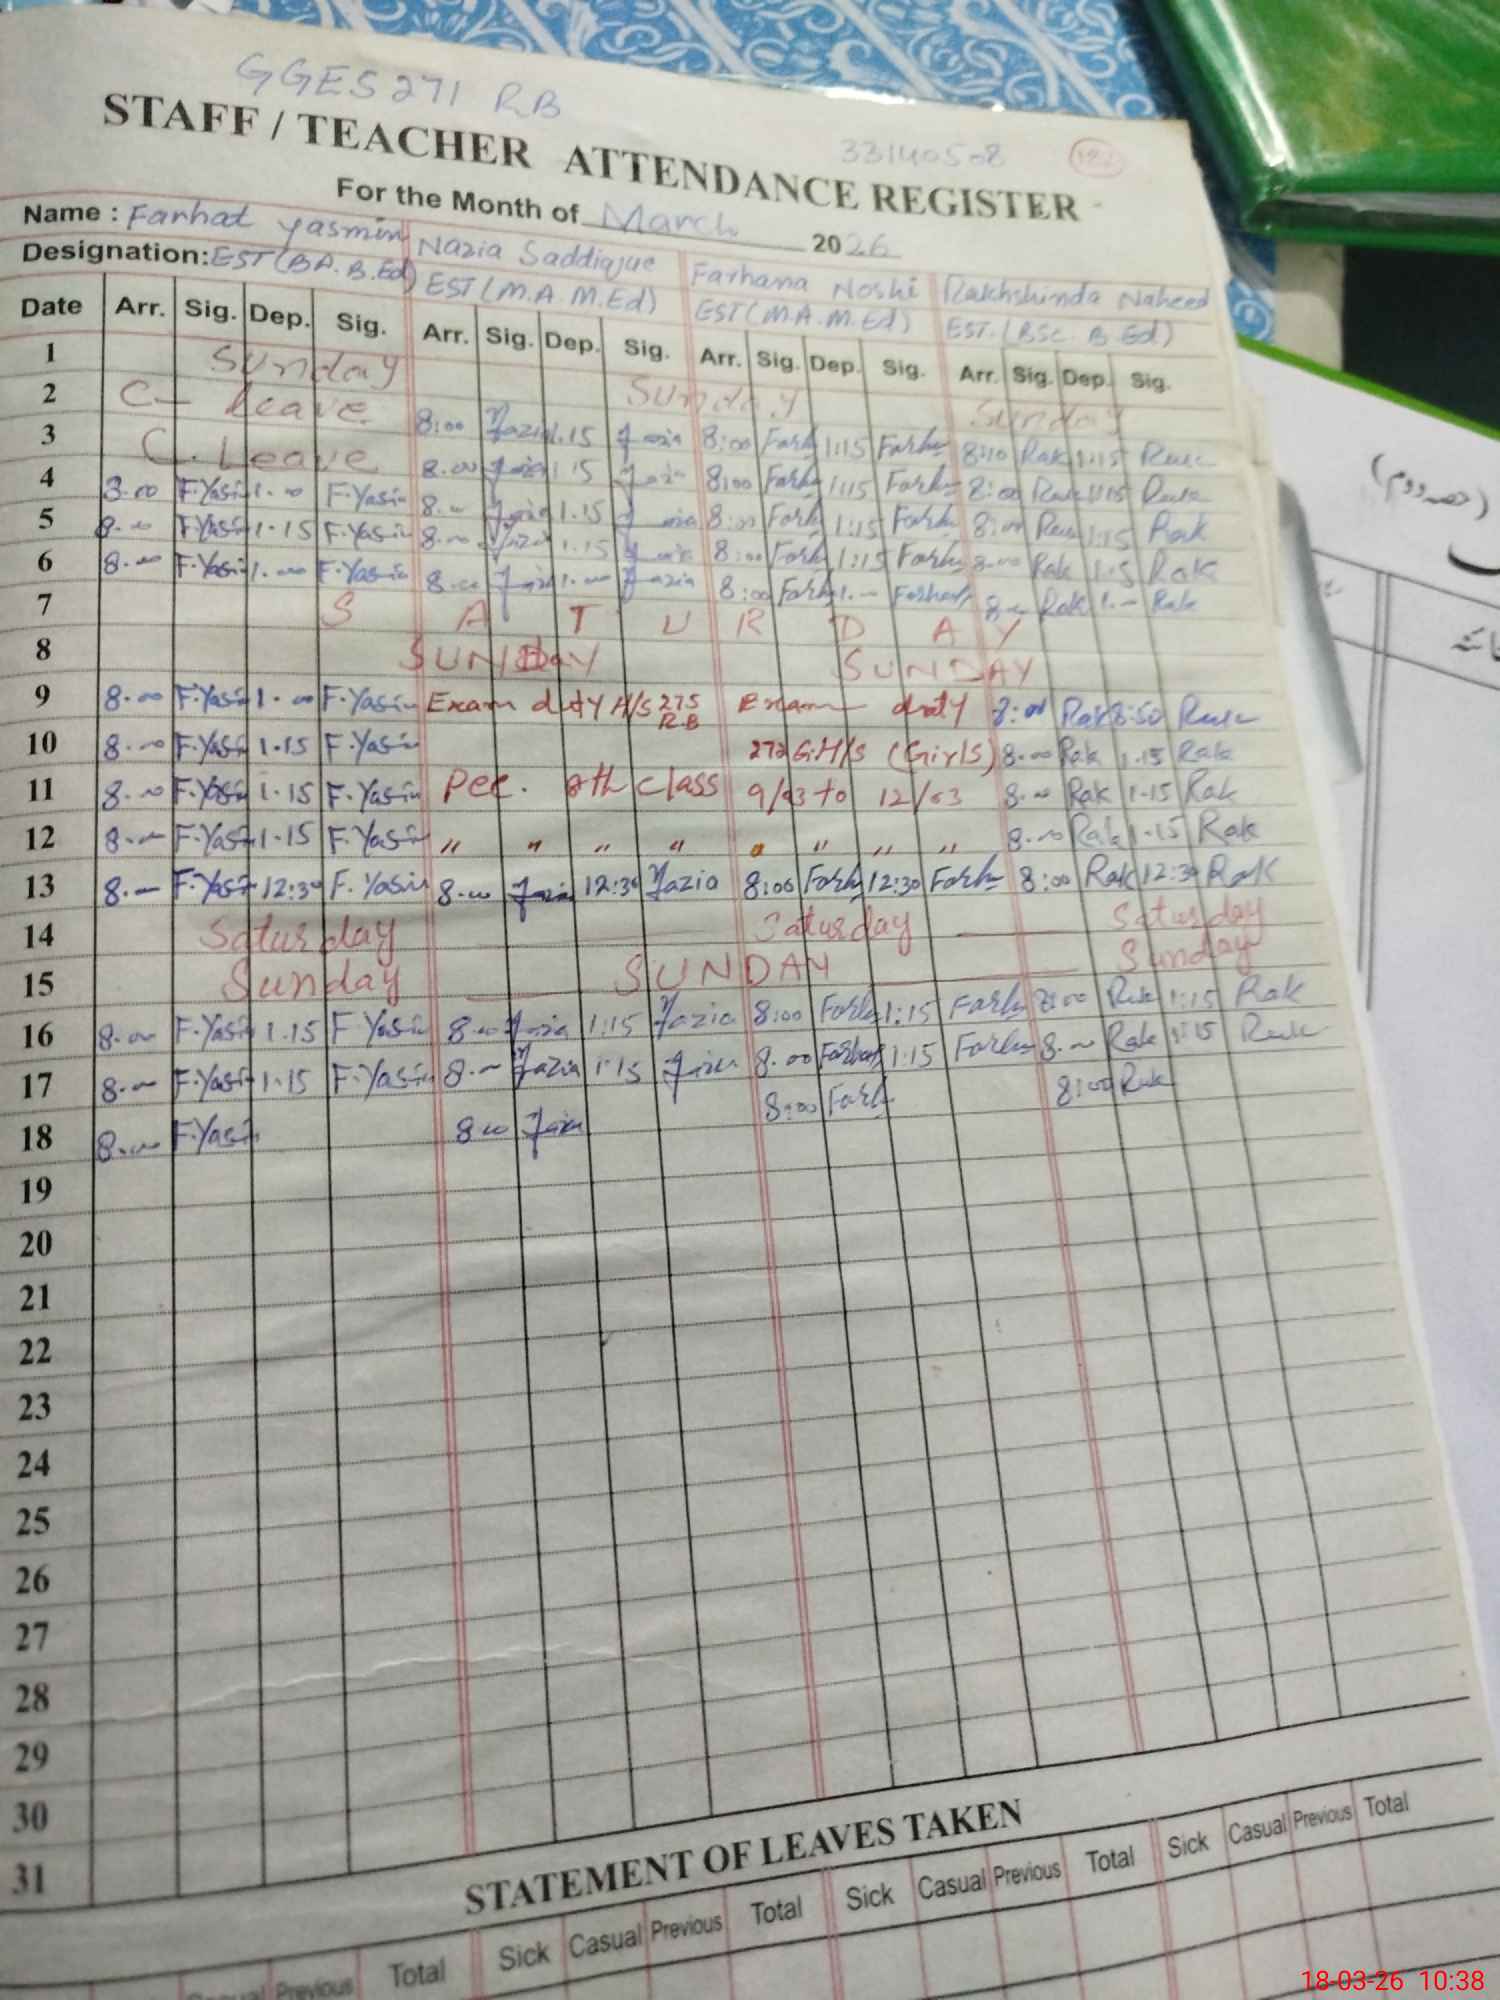 GGES 271 RB
33140508
STAFF / TEACHER ATTENDANCE REGISTER
For the Month of March 2026
Name : Farhat Yasmin Nazia Saddique Farhana Noshi Rakhshinda Naheed
Designation: EST (BA. B.Ed) EST (M.A. M.Ed) EST (M.A. M.Ed) EST. (BSc. B.Ed)
Date Arr. Sig. Dep. Sig. Arr. Sig. Dep. Sig. Arr. Sig. Dep. Sig. Arr. Sig. Dep. Sig.
1 Sunday Sunday Sunday
2 C- Leave 8:00 Nazia 1.15 Nazia 8:00 Farh 1:15 Farh 8:10 Rak 1:15 Rak
3 C. Leave 8.00 Nazia 1.15 Nazia 8:00 Farh 1:15 Farh 8:00 Rak 1:15 Rak
4 8.00 F.Yasin 1.00 F.Yasin 8.00 Nazia 1.15 Nazia 8:00 Farh 1:15 Farh 8:00 Rak 1:15 Rak
5 8.00 F.Yasin 1.15 F.Yasin 8.00 Nazia 1.15 Nazia 8:00 Farh 1:15 Farh 8.00 Rak 1:5 Rak
6 8.00 F.Yasin 1.00 F.Yasin 8.00 Nazia 1.00 Nazia 8:00 Farh 1.- Farhat 8.00 Rak 1.- Rak
7 S A T U R D A Y
8 SUNDAY SUNDAY
9 8.00 F.Yasin 1.00 F.Yasin Exam duty H/S 275 R.B Exam duty 8:00 Rak 8:50 Rak
10 8.00 F.Yasin 1.15 F.Yasin 272 G.H/S (Girls) 8.00 Rak 1.15 Rak
11 8.00 F.Yasin 1.15 F.Yasin Pec. 8th class 9/03 to 12/03 8.00 Rak 1.15 Rak
12 8.00 F.Yasin 1.15 F.Yasin " " " " " " " " 8.00 Rak 1.15 Rak
13 8.00 F.Yasin 12:30 F.Yasin 8.00 Nazia 12:30 Nazia 8:00 Farh 12:30 Farh 8:00 Rak 12:30 Rak
14 Saturday Saturday Saturday
15 Sunday SUNDAY Sunday
16 8.00 F.Yasin 1.15 F Yasin 8.00 Nazia 1:15 Nazia 8:00 Farh 1:15 Farh 8:00 Rak 1:15 Rak
17 8.00 F.Yasin 1.15 F.Yasin 8.00 Nazia 1:15 Nazia 8.00 Farhat 1:15 Farh 8.00 Rak 1:15 Rak
18 8.00 F.Yasin 8.00 Nazia 8:00 Farh 8:00 Rak
19
20
21
22
23
24
25
26
27
28
29
30
31
STATEMENT OF LEAVES TAKEN
Casual Previous Total Sick Casual Previous Total Sick Casual Previous Total Sick Casual Previous Total
(حصہ دوم)
18-03-26 10:38